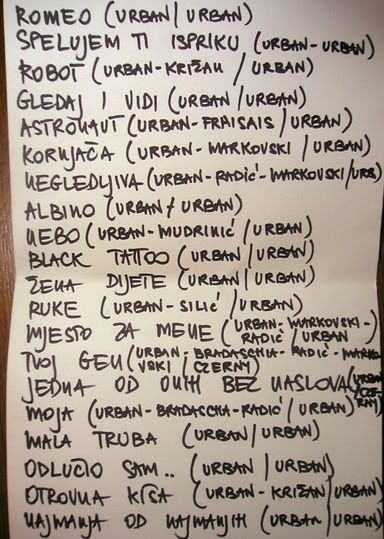 ROMEO (URBAN/URBAN)
SPELUJEM TI ISPRIKU (URBAN-URBAN)
ROBOT (URBAN-KRIŽAN/URBAN)
GLEDAJ I VIDI (URBAN/URBAN)
ASTRONAUT (URBAN-FRAISAIS/URBAN)
KORNJAČA (URBAN-MARKOVSKI/URBAN)
NEGLEDLJIVA (URBAN-RADIĆ-MARKOVSKI/URB)
ALBINO (URBAN/URBAN)
NEBO (URBAN-MUDRINIĆ/URBAN)
BLACK TATTOO (URBAN/URBAN)
ŽENA DIJETE (URBAN/URBAN)
RUKE (URBAN-SILIĆ/URBAN)
MJESTO ZA MENE (URBAN-MARKOVSKI-
RADIĆ/URBAN
TVOJ GEN (URBAN-BRADASCHIA-RADIĆ-MARKO
VSKI/CZERNY)
JEDNA OD ONIH BEZ NASLOVA (URBAN
/CZE-
RNY)
MOJA (URBAN-BRADASCHA-RADIĆ/URBAN)
MALA TRUBA (URBAN/URBAN)
ODLUČIO SAM.. (URBAN/URBAN)
OTROVNA KIŠA (URBAN-KRIŽAN/URBAN)
NAJMANJA OD NAJMANJIH (URBAN/URBAN)